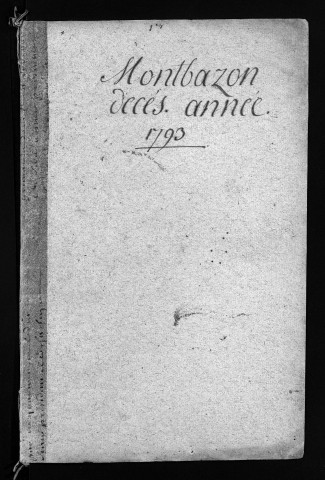 Montbazon
decés. année.
1793